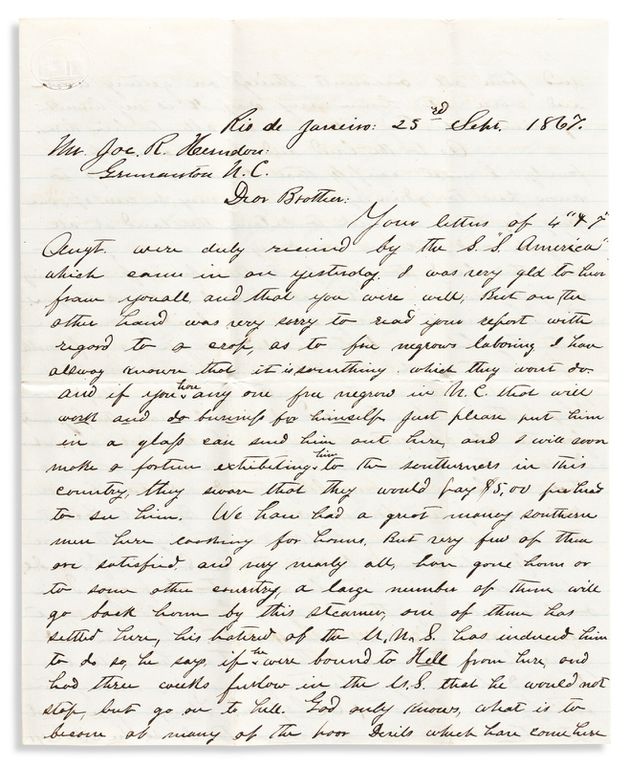 Rio de Janeiro: 23rd Sept. 1867.
Mr. Joe. R. Herndon:
N. C.
Dear Brother:
Your letters of 4" & 7"
Augt. were duly recieved by the S. S. "America"
which came in on yesterday. I was very gld to hear
from youall, and that you were well; But on the
other hand was very sorry to read your report with
regard to a crop, as to free negrows laboring I have
allway known that it is somthing which they wont do.
and if you have any one free negrow in N. C. that will
work and do business for himself just please put him
in a glass case send him out here, and I will soon
make a fortune exhibiting him to the southerners in this
country, they sware that they would pay $5,00 per head
to see him. We have had a great many southern
men here looking for homes, But very few of them
are satisfied, and very nearly all, have gone home or
to some other country, a large number of them will
go back home by this steamer, one of them has
settled here, his hatred of the U. S. has induced him
to do so, he says, if he were bound to Hell from here, and
had three weeks furlow in the U.S. that he would not
stop, but go on to hell. God only knows, what is to
become of many of the poor Devils which have come here